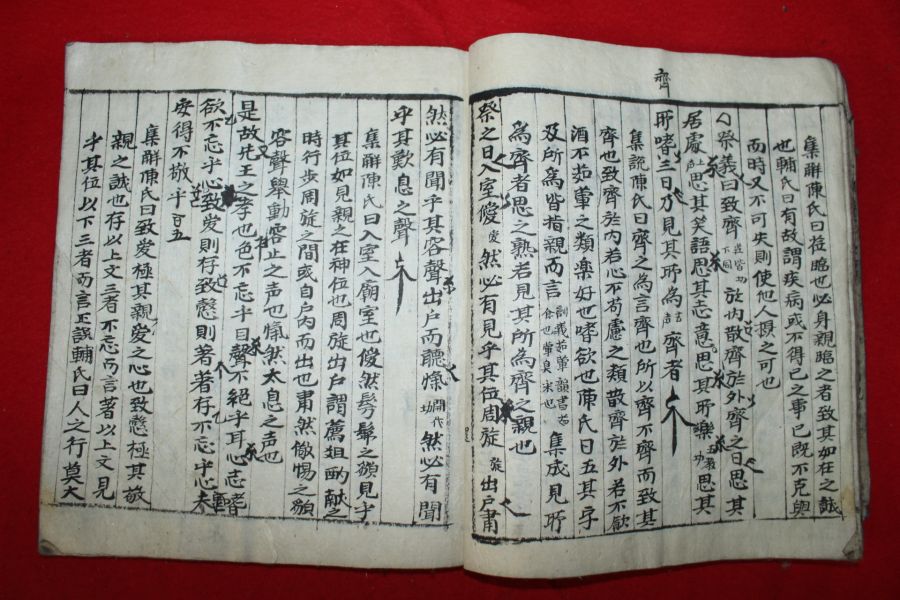 齊
集解陳氏曰莅臨也必身親臨之者致其如在之誠
也輔氏曰有故謂疾病或不得已之事已既不克與
而時又不可失則使他人攝之可也
祭義曰致齊於內散齊於外齊之日思其
居處思其笑語思其志意思其所樂思其
所嗜三日於見其所為齊者
集說陳氏曰齊之為言齊也所以齊不齊而致其
齊也致齊於內若心不苟慮之類散齊於外若不飲
酒不茹葷之類樂好也嗜欲也陳氏曰五其字
及所為皆指親而言 集成見所
為齊者思之熟若見其所為齊之親也
祭之日入室僾然必有見乎其位周旋出戶肅
然必有聞乎其容聲出戶而聽愾然必有聞
乎其歎息之聲
集解陳氏曰入室入廟室也僾然髣髴之貌見乎
其位如見親之在神位也周旋出戶謂薦俎酌献之
時行步周旋之間或自戶內而出也肅然儆惕之貌
容聲舉動容止之声也愾然太息之声也
是故先王之孝也色不忘乎目聲不絕乎耳心志嗜
欲不忘乎心致愛則存致慤則著著存不忘乎心夫
安得不敬乎
集解陳氏曰致爱極其親愛之心也致慤極其敬
親之誠也存以上文三者不忘而言著以上文見
乎其位以下三者而言正誤輔氏曰人之行莫大